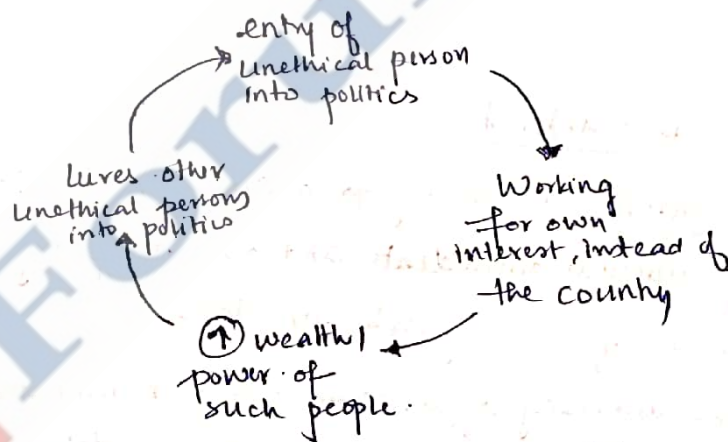 entry of
unethical person
into politics
Working
for own
interest, instead of
the country
↑ wealth/
power of
such people.
Lures other
unethical persons
into politics
Forum